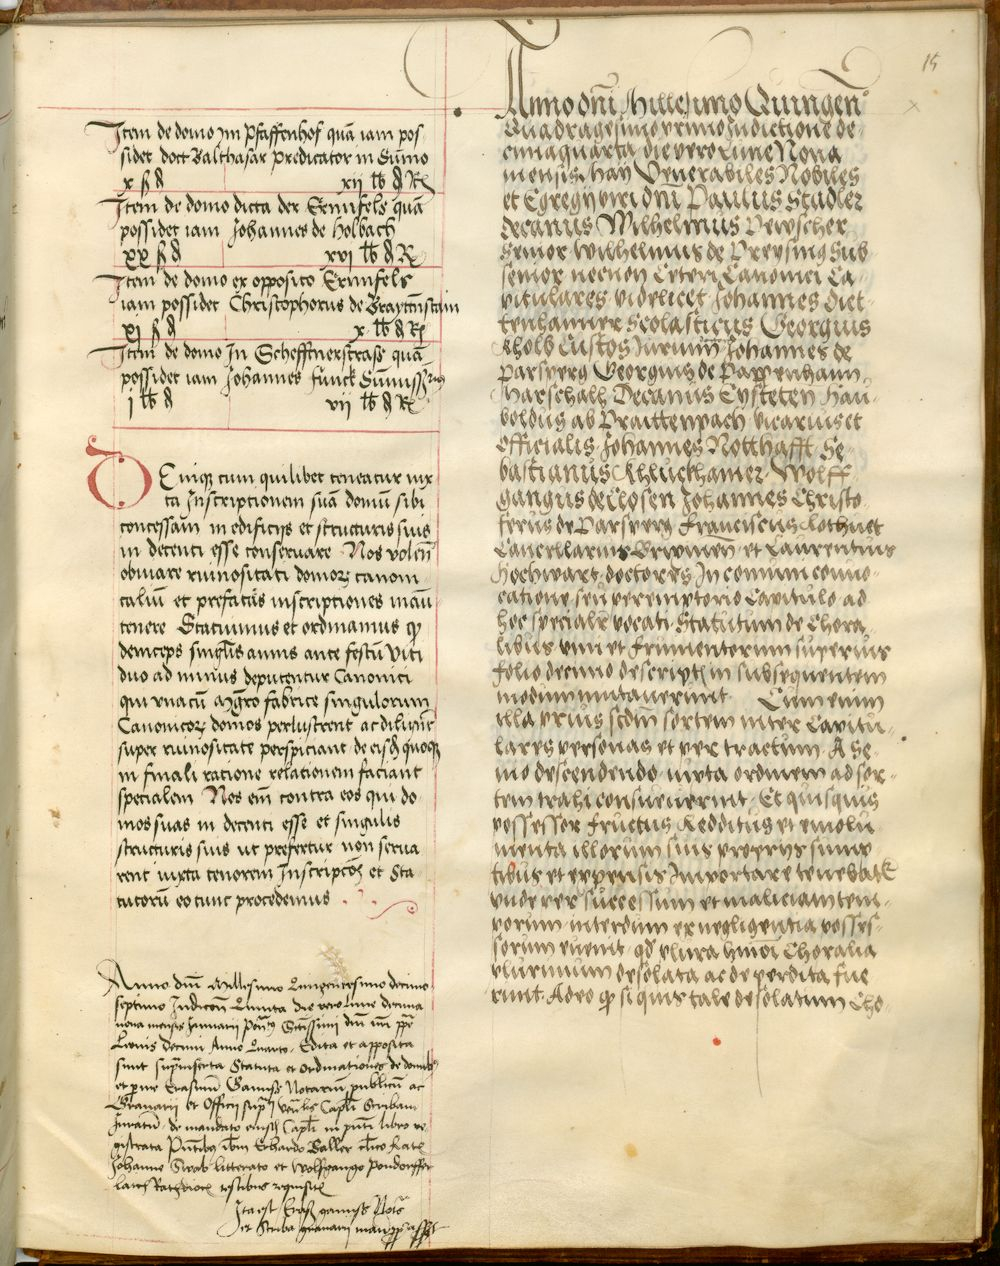 15
Item de domo im Pfaffenhof quā iam pos
sidet doct Balthasar predicator in Sūmo
x ß ₰ xii lb ₰ R
Item de domo dicta der Ernnfels quā
possidet iam Johannes de Holbach
xx ß ₰ xvi lb ₰ R
Item de domo ex opposito Ernnfels
iam possidet Christophorus de
xj ß ₰ x lb ₰ R
Item de domo In Schefftnerstrass quā
possidet iam Johannes Funck
j lb ₰ vii lb ₰ R
Deniqz cum quilibet teneatur iux
ta Inscriptionem suā domū sibi
concessam in edificijs et structuris suis
in decenti esse conservare Nos volen̄
obviare ruinositati domorz canoni
calium et prefatas inscriptiones manu
tenere Statuimus et ordinamus qz
deinceps singlis annis ante festū Viti
duo ad minus deputentur Canonici
qui vnacū mgro fabrice singulorum
Canonicorz domos perlustrent ac diligēt
super ruinositate perspiciant de eisd quoqz
in finali ratione relationem faciant
specialem Nos em̄ contra eos qui do
mos suas in decenti esse et singulis
structuris suis ut prefertur non serua
rent iuxta tenorem Inscriptōm et Sta
tutorū eo tunc procedemus
Anno dn̄i Millesimo Quingentesimo decimo
septimo Indictōn Quinta die vero lune decima
nona mensis Januarii
Leonis decimi Anno Quarto Edita et apposita
sunt suprainserta Statuta et Ordinationes de domibus
et per me Erasmū Notariū publicū ac
Granarij et Officij Scribam
Juratū de mandato eiusdē Capli in pn̄ti libro re
gistrata Pn̄tibus ibm Erhardo
Johanne Swab litterato et Wolfgango
testibus requisitis
Ita est Notꝰ
et Scriba granarij manu ppa
Anno dn̄i Millesimo Quingen̄º
Quadragesimo primo Indictione de
cimaquarta die vero Lune Nona
mensis May Venerabiles Nobiles
et Egregij viri dn̄i Paulus Stadler
Decanus Wilhelmus Pewscher
Senior Wilhelmus de Preysing Sub
senior necnon Ceteri Canonici Ca
pitulares videlicet Johannes Diet
tenhamer Scolasticus Georgius
Kholb Custos Johannes de
Parsperg Georgius de Pappenhaim
Marschalh Decanus Eysteten Han
boldus ab Praittenpach vicarius et
Officialis Johannes Notthafft Se
bastianus Wolff
gangus de Closen Johannes Christo
ferus de Parsperg Franciscus
Cancellarius et Laurentius
Hochwart doctores In comuni convo
catione seu peremptorio Capitulo ad
hoc specialr vocati Statutum de Chora
libus vini et Frumentorum superius
folio decimo descriptū in subsequentem
modum mutauerunt Cum enim
illa prius scdm sortem inter Capitu
lares personas et per tractum A Se
nio descendendo iuxta ordinem ad sor
tem trahi consueuerint Et quisquis
possessor fructus Redditus et emolu
menta illorum suis proprijs sump
tibus et expensis Importare tenebatr
vnde per successum et maliciam tem
porum interdum ex negligentia posses
sorum euenit qd plura hmōi Choralia
plurimum desolata ac deperdita fue
runt Adeo qz si quis tale desolatum Cho